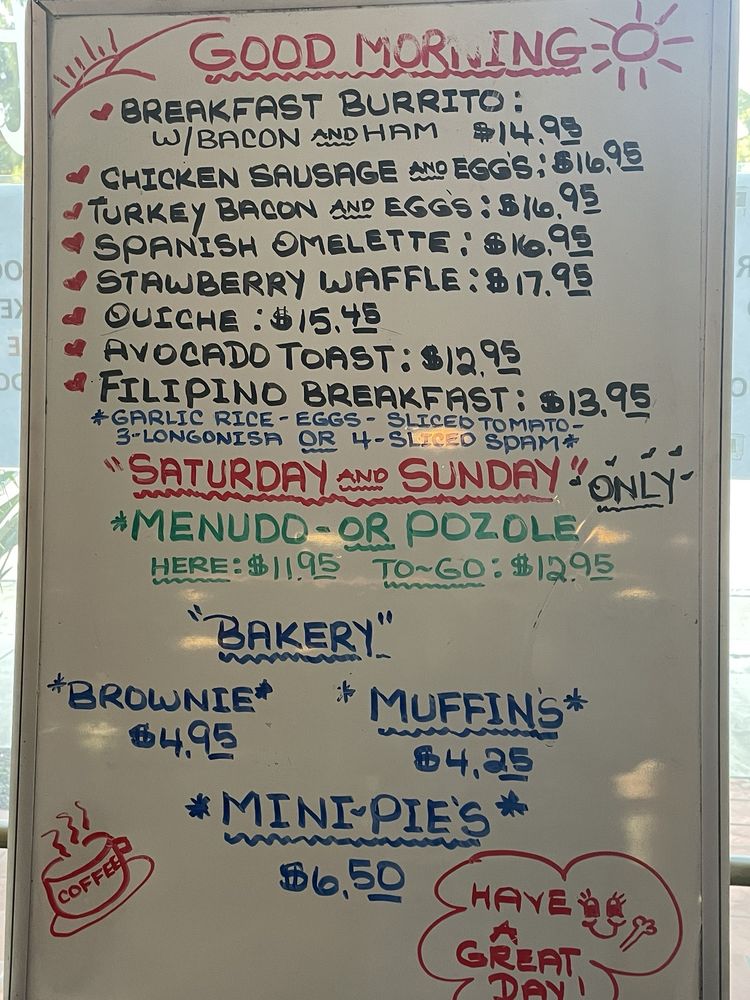 GOOD MORNING
BREAKFAST BURRITO:
W/BACON AND HAM $14.95
CHICKEN SAUSAGE AND EGG'S: $16.95
TURKEY BACON AND EGG'S: $16.95
SPANISH OMELETTE: $16.95
STAWBERRY WAFFLE: $17.95
QUICHE: $15.45
AVOCADO TOAST: $12.95
FILIPINO BREAKFAST: $13.95
*GARLIC RICE - EGGS - SLICED TOMATO-
3-LONGONISA OR 4-SLICED SPAM*
"SATURDAY AND SUNDAY" -ONLY-
*MENUDO-OR POZOLE
HERE: $11.95 TO-GO: $12.95
"BAKERY"
*BROWNIE* *MUFFIN'S*
$4.95 $4.25
*MINI-PIE'S*
$6.50
COFFEE
HAVE
A
GREAT
DAY!